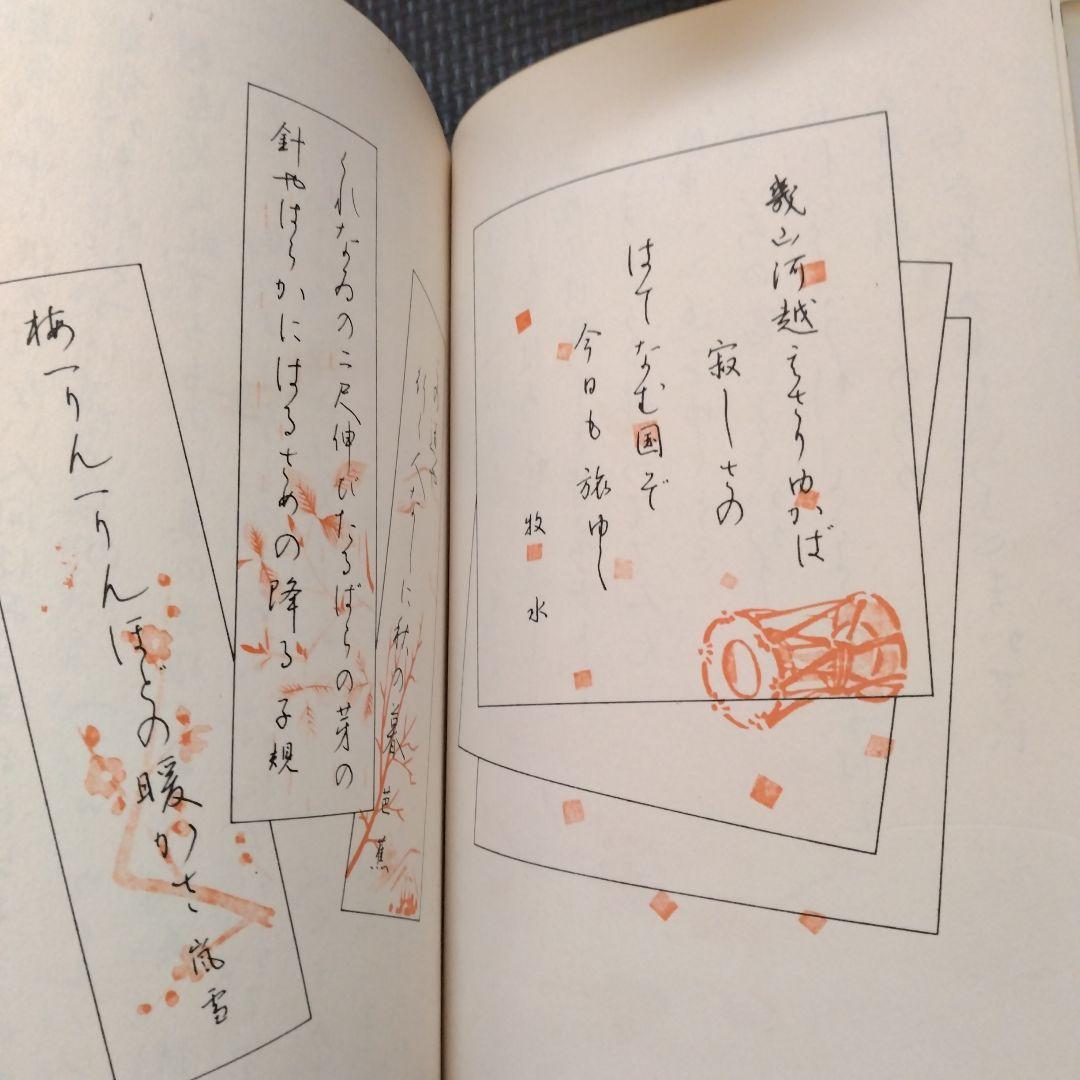 幾山河越えさりゆかば
寂しさの
はてなむ国ぞ
今日も旅ゆく
牧水
行く人なしに秋の暮
芭蕉
くれなゐの二尺伸びたるばらの芽の
針やはらかにはるさめの降る 子規
梅一りん一りんほどの暖かさ 嵐雪